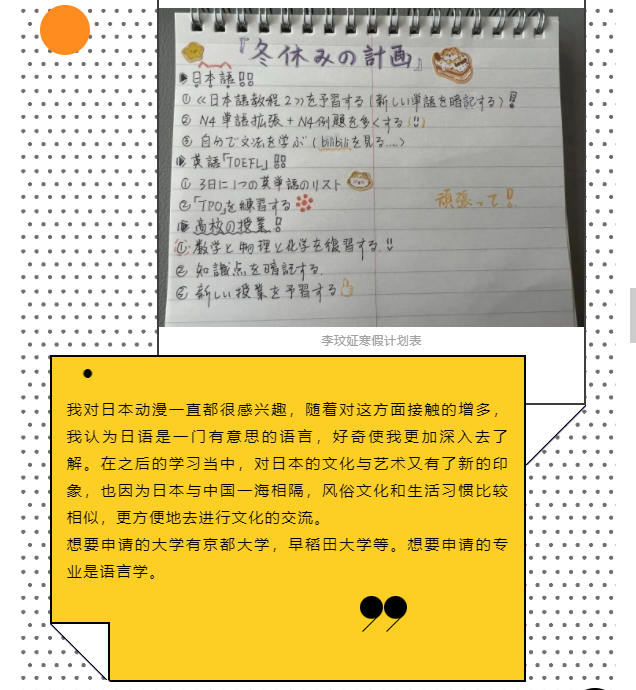 『冬休みの計画』
日本語!!
① 《日本語教程2》を予習する(新しい単語を暗記する)!!
② N4単語拡張+N4例題を多くする(!!)
③ 自分で文法を学ぶ(bilibiliを見る....)
英語「TOEFL」!!
① 3日に1つの英単語のリスト
②「TPO」を練習する
頑張って!!
高校の授業!!
① 数学と物理と化学を復習する!!
② 知識点を暗記する.
③ 新しい授業を予習する
李玟姃寒假计划表
我对日本动漫一直都很感兴趣，随着对这方面接触的增多，
我认为日语是一门有意思的语言，好奇使我更加深入去了
解。在之后的学习当中，对日本的文化与艺术又有了新的印
象，也因为日本与中国一海相隔，风俗文化和生活习惯比较
相似，更方便地去进行文化的交流。
想要申请的大学有京都大学，早稻田大学等。想要申请的专
业是语言学。